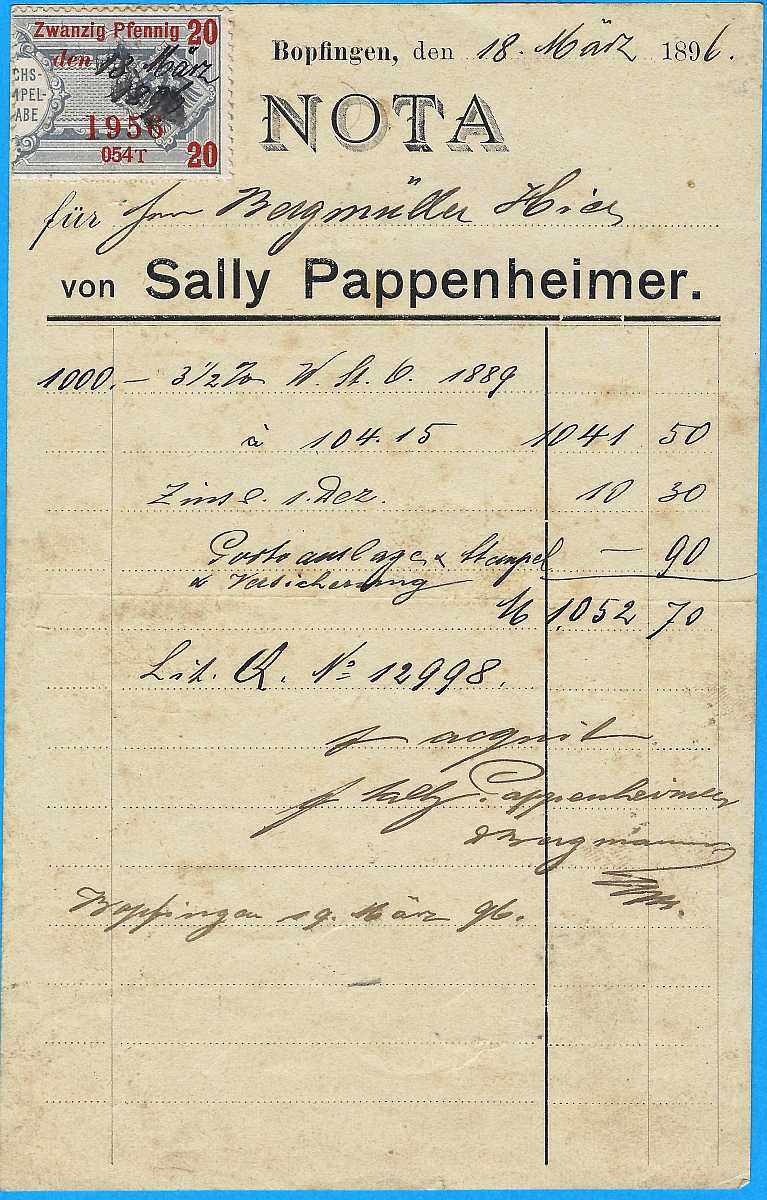 Zwanzig Pfennig 20
den 18 März
1896
CHS-
MPEL-
ABE
1956
054T 20
Bopfingen, den 18. März 1896.
NOTA
für Herrn Bergmüller Hier
von Sally Pappenheimer.
1000.- 3 1/2 % W. St. O. 1889
à 104.15 1041 50
Zins e. 1. Dez. 10 30
Portoauslage & Stempel - 90
& Versicherung
M 1,052 70
Lit. Q. No 12998.
acquit
Sally Pappenheimer
Bopfingen 19. März 96.